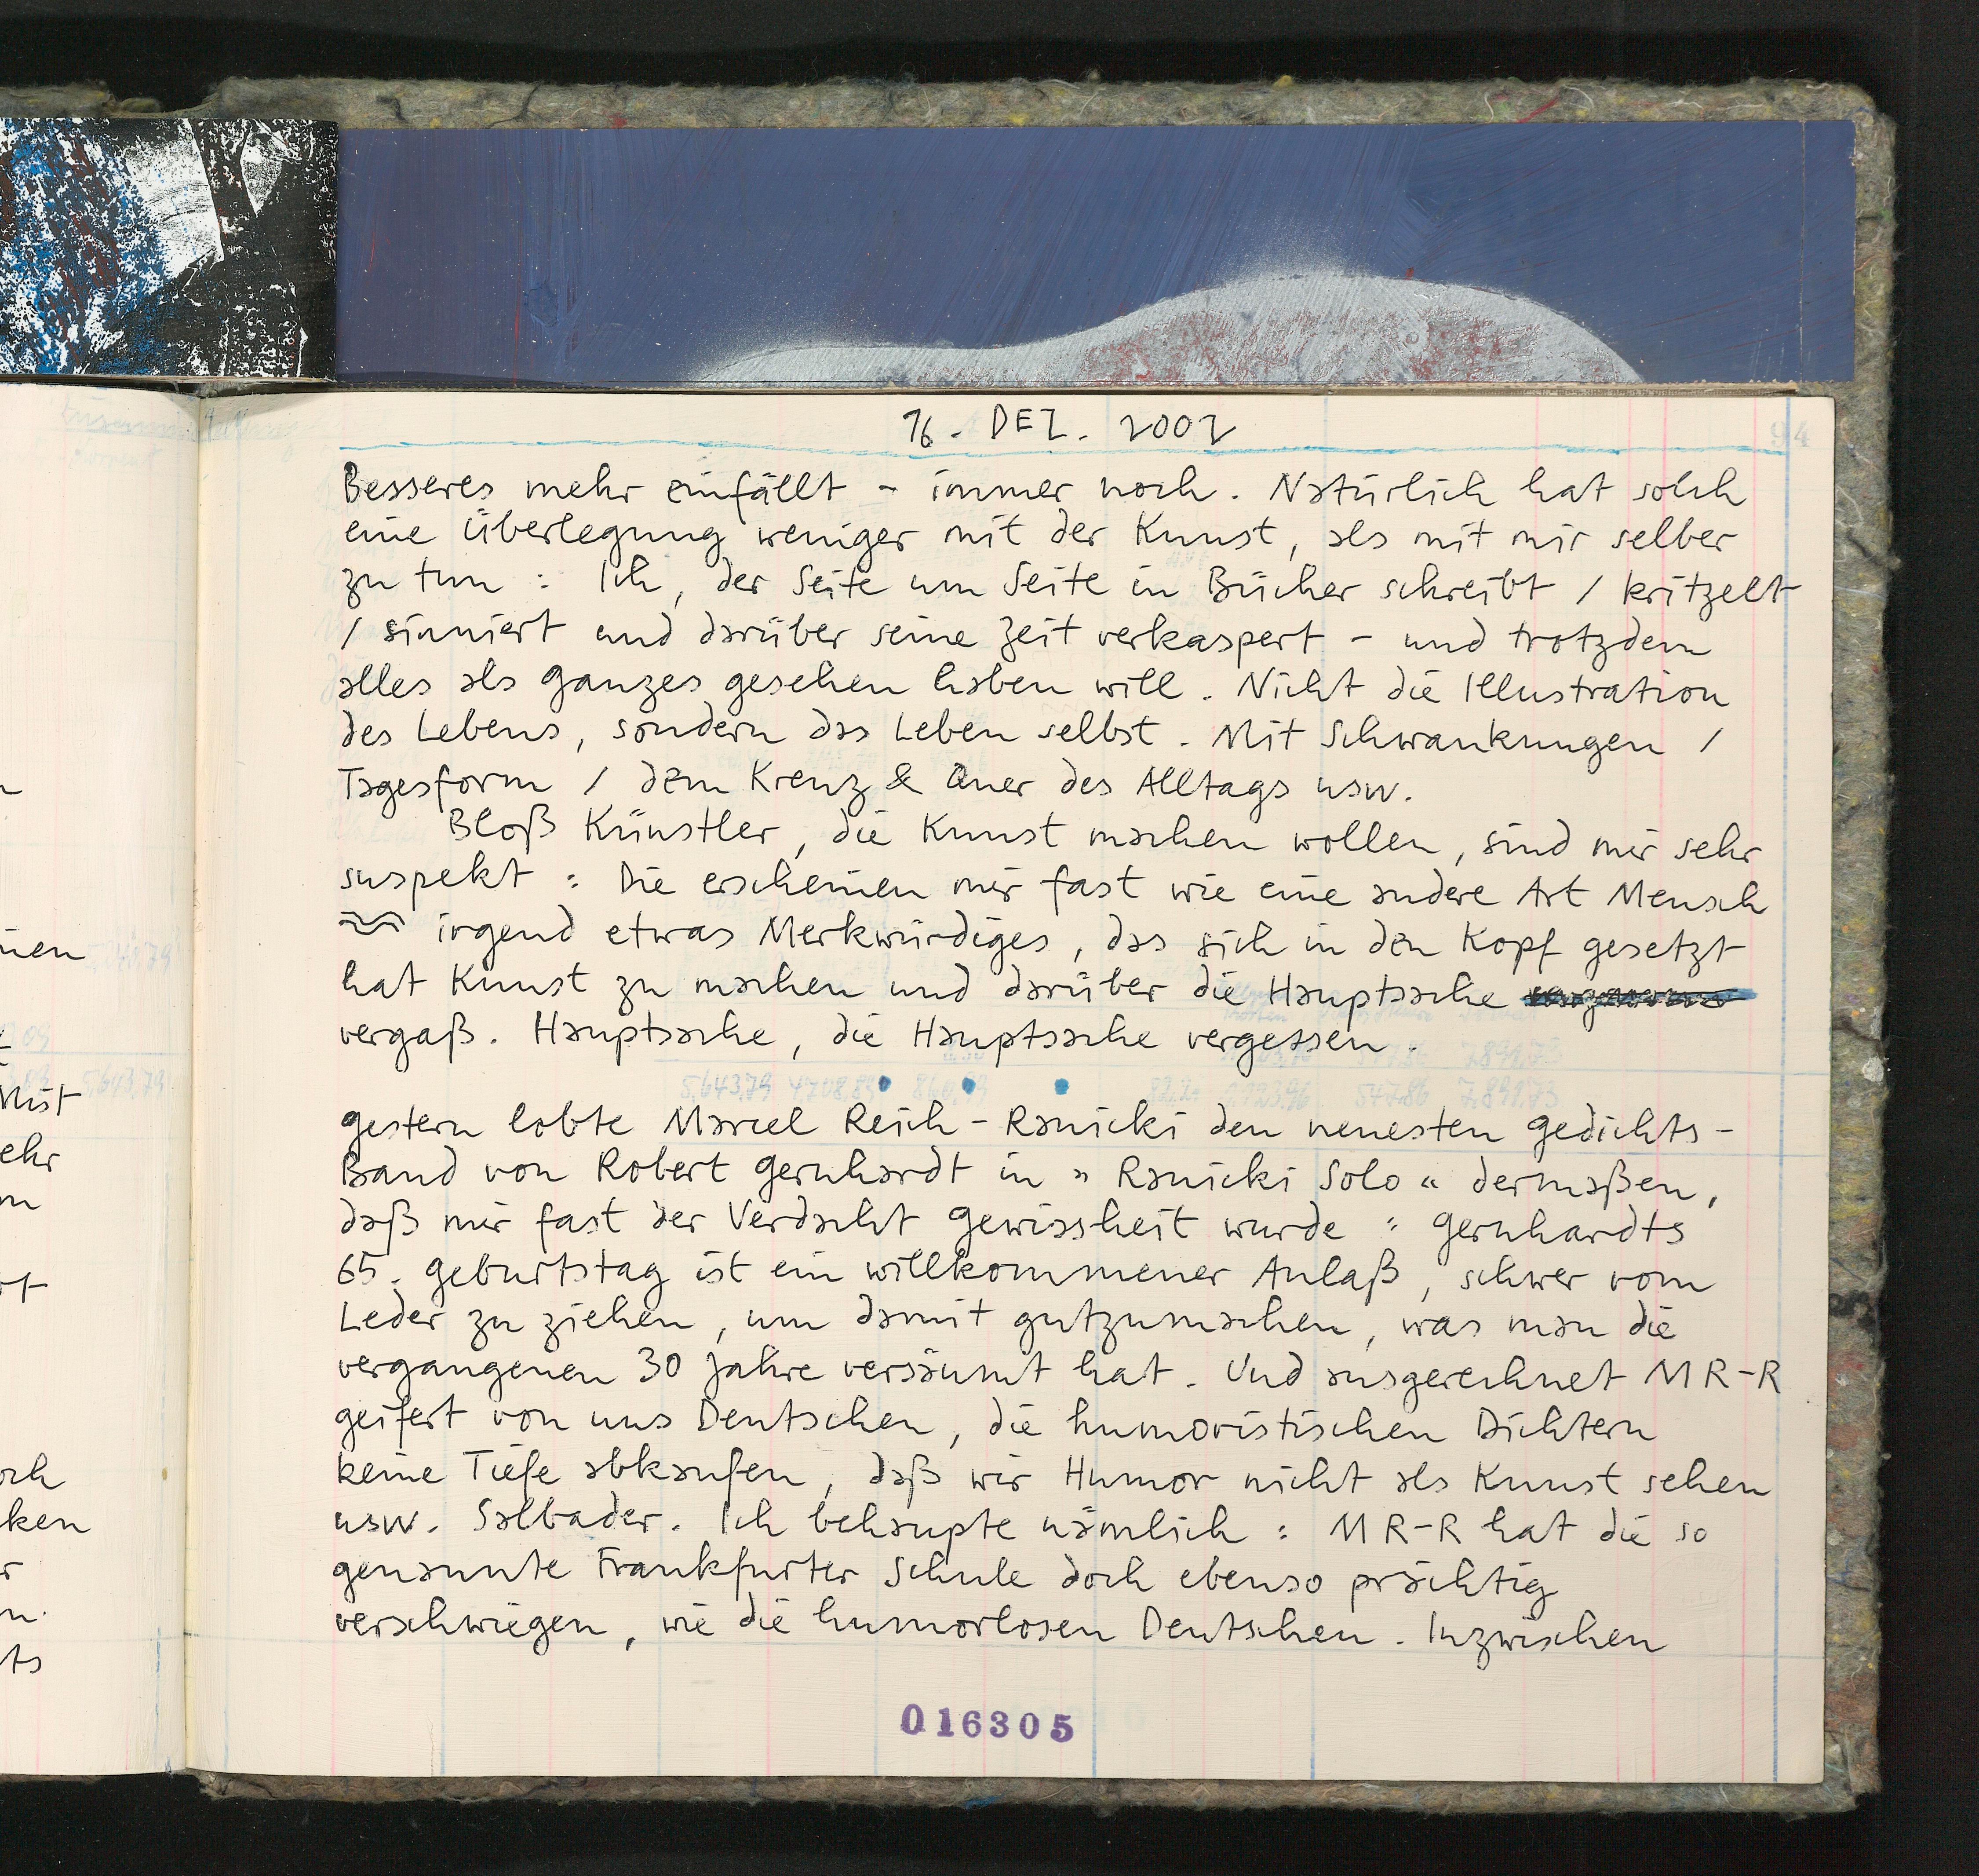 16. DEZ. 2002
94
Besseres mehr einfällt - immer noch. Natürlich hat solch
eine Überlegung weniger mit der Kunst, als mit mir selber
zu tun : Ich, der Seite um Seite in Bücher schreibt / kritzelt
/ sinniert und darüber seine Zeit verkaspert - und trotzdem
alles als Ganzes gesehen haben will. Nicht die Illustration
des Lebens, sondern das Leben selbst. Mit Schwankungen /
Tagesform / dem Kreuz & Quer des Alltags usw.
Bloß Künstler, die Kunst machen wollen, sind mir sehr
suspekt : Die erscheinen mir fast wie eine andere Art Mensch
irgend etwas Merkwürdiges, das sich in den Kopf gesetzt
hat Kunst zu machen und darüber die Hauptsache
vergaß. Hauptsache, die Hauptsache vergessen.
Gestern lobte Marcel Reich-Ranicki den neuesten Gedichts-
Band von Robert Gernhardt in » Ranicki Solo « dermaßen,
daß mir fast der Verdacht Gewissheit wurde : Gernhardts
65. Geburtstag ist ein willkommener Anlaß, schwer vom
Leder zu ziehen, um damit gutzumachen, was man die
vergangenen 30 Jahre versäumt hat. Und ausgerechnet MR-R
geifert von uns Deutschen, die humoristischen Dichtern
keine Tiefe abkaufen, daß wir Humor nicht als Kunst sehen
usw. Salbader. Ich behaupte nämlich : MR-R hat die so
genannte Frankfurter Schule doch ebenso prächtig
verschwiegen, wie die humorlosen Deutschen. Inzwischen
016305